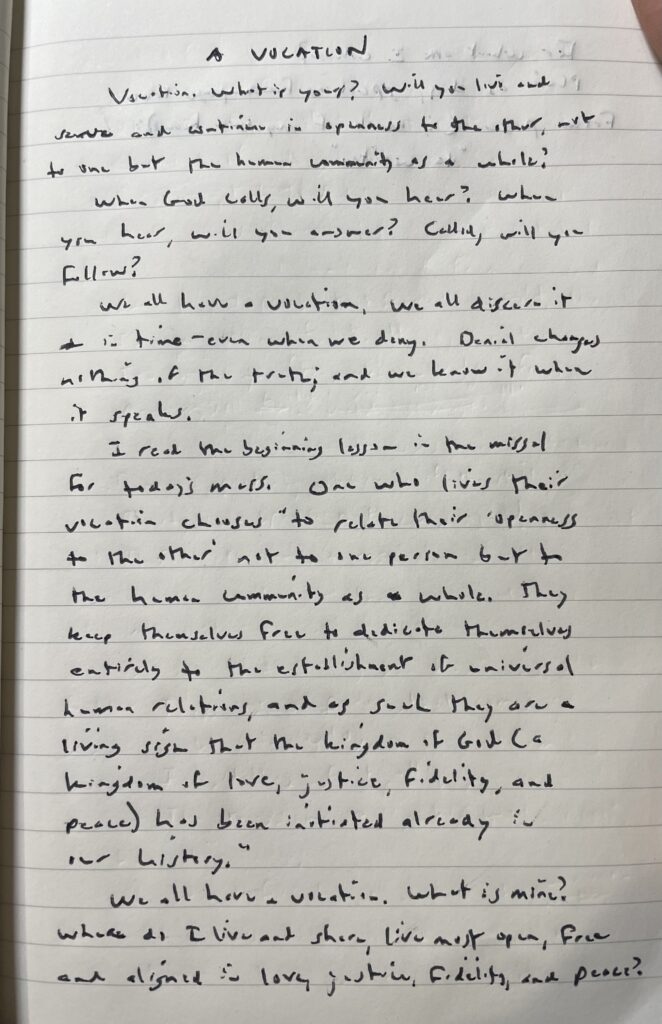 A VOCATION
Vocation. What is yours? Will you live and
serve and continue in openness to the other, not
to one but the human community as a whole?
When God calls, will you hear? When
you hear, will you answer? Called, will you
follow?
We all have a vocation. We all discern it
in time - even when we deny. Denial changes
nothing of the truth; and we know it when
it speaks.
I read the beginning lesson in the missal
for today's mass. One who lives their
vocation chooses "to relate their 'openness
to the other' not to one person but to
the human community as a whole. They
keep themselves free to dedicate themselves
entirely to the establishment of universal
human relations, and as such they are a
living sign that the kingdom of God (a
kingdom of love, justice, fidelity, and
peace) has been initiated already in
our history."
We all have a vocation. What is mine?
Where do I live and share, live most open, free
and aligned in love, justice, fidelity, and peace?